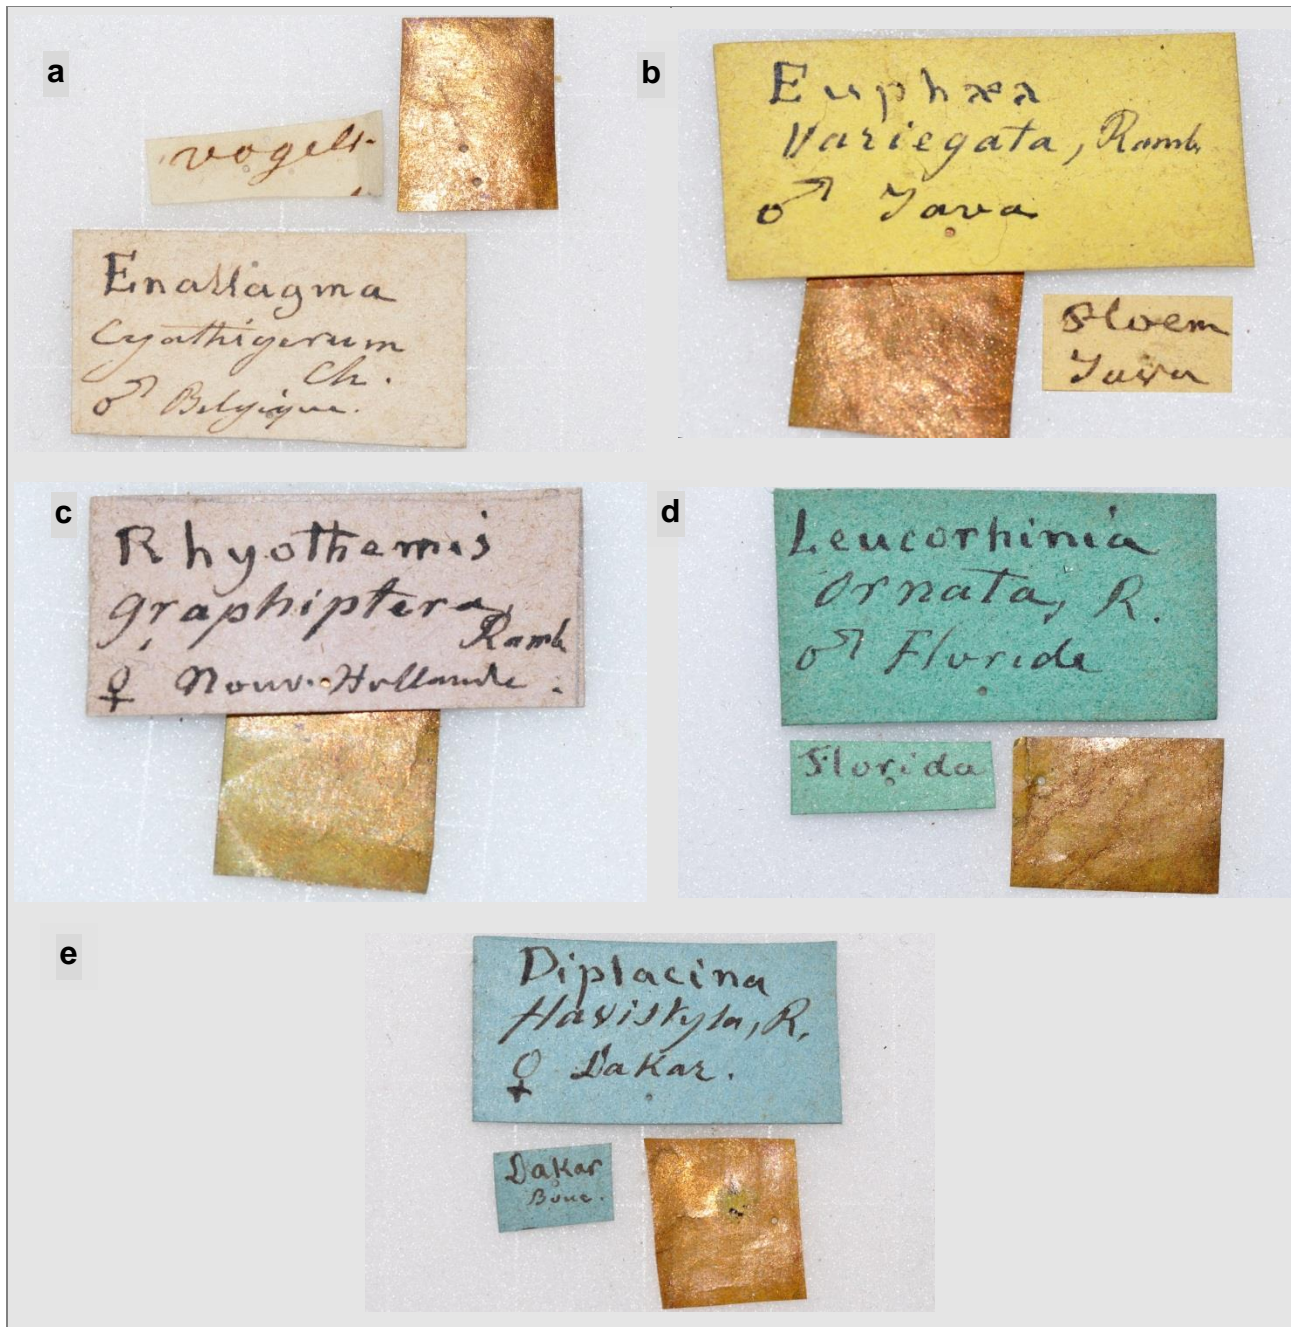 a
vogels-
Enallagma
Cyathigerum
Ch.
♂ Belgique.
b
Euphæa
Variegata, Ramb
♂ Java
Ploem
Java
c
Rhyothemis
graphiptera,
Ramb
♀ Nouv. Hollande.
d
Leucorhinia
Ornata, R.
♂ Floride
Florida
e
Diplacina
flavistyla, R.
♀ Dakar.
Dakar
Bouc.